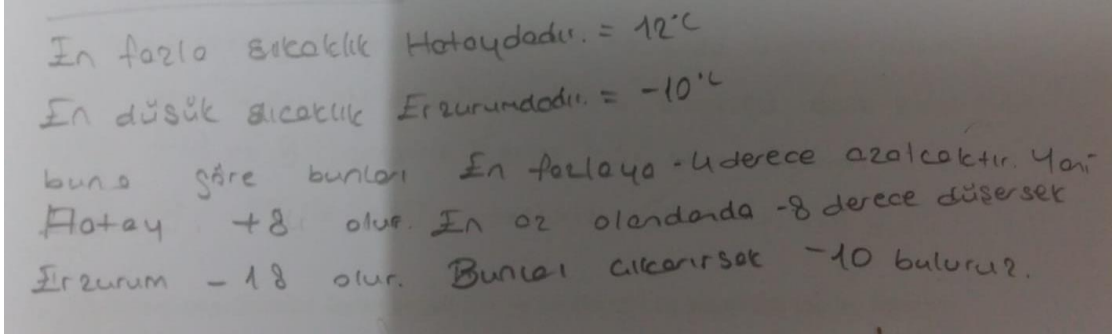 En fazla sıcaklık Hataydadır. = 12°C
En düşük sıcaklık Erzurumdadır. = -10°C
buna göre bunları En fazlaya -4 derece azalcaktır. Yani
Hatay +8 olur. En az olandanda -8 derece düşersek
Erzurum -18 olur. Bunları çıkarırsak -10 buluruz.